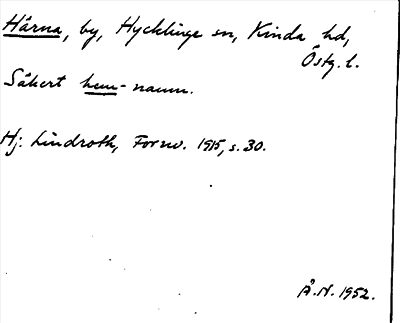 Hårna, by, Hycklinge sn, Kinda hd,
Östg. l.
Säkert hem-namn.
Hj. Lindroth, Fornv. 1915, s. 30.
Å.N. 1952.